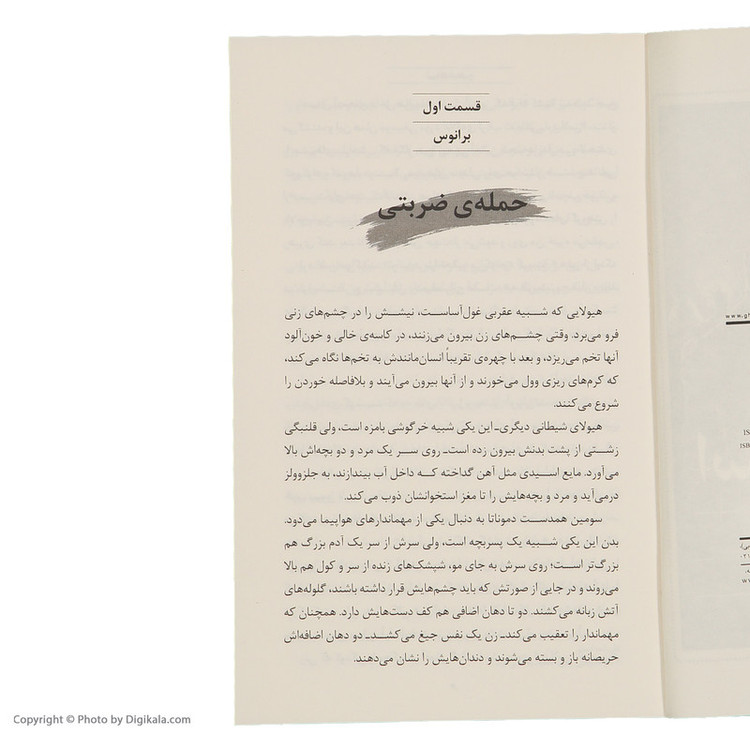 قسمت اول
برانوس
حمله‌ی ضربتی
هیولایی که شبیه عقربی غول‌آساست، نیشش را در چشم‌های زنی
فرو می‌برد. وقتی چشم‌های زن بیرون می‌زنند، در کاسه‌ی خالی و خون‌آلود
آنها تخم می‌ریزد، و بعد با چهره‌ی تقریباً انسان‌مانندش به تخم‌ها نگاه می‌کند،
که کرم‌های ریزی وول می‌خورند و از آنها بیرون می‌آیند و بلافاصله خوردن را
شروع می‌کنند.
هیولای شیطانی دیگری- این یکی شبیه خرگوشی بامزه است، ولی قلنبگی
زشتی از پشت بدنش بیرون زده است- روی سر یک مرد و دو بچه‌اش بالا
می‌آورد. مایع اسیدی مثل آهن گداخته که داخل آب بیندازند، به جلزوولز
درمی‌آید و مرد و بچه‌هایش را تا مغز استخوانشان ذوب می‌کند.
سومین همدست دموناتا به دنبال یکی از مهماندارهای هواپیما می‌دود.
بدن این یکی شبیه یک پسربچه است، ولی سرش از سر یک آدم بزرگ هم
بزرگ‌تر است؛ روی سرش به جای مو، شپشک‌های زنده از سر و کول هم بالا
می‌روند و در جایی از صورتش که باید چشم‌هایش قرار داشته باشند، گلوله‌های
آتش زبانه می‌کشند. دو تا دهان اضافی هم کف دست‌هایش دارد. همچنان که
مهماندار را تعقیب می‌کند- زن یک نفس جیغ می‌کشد- دو دهان اضافه‌اش
حریصانه باز و بسته می‌شوند و دندان‌هایش را نشان می‌دهند.
Copyright © Photo by Digikala.com